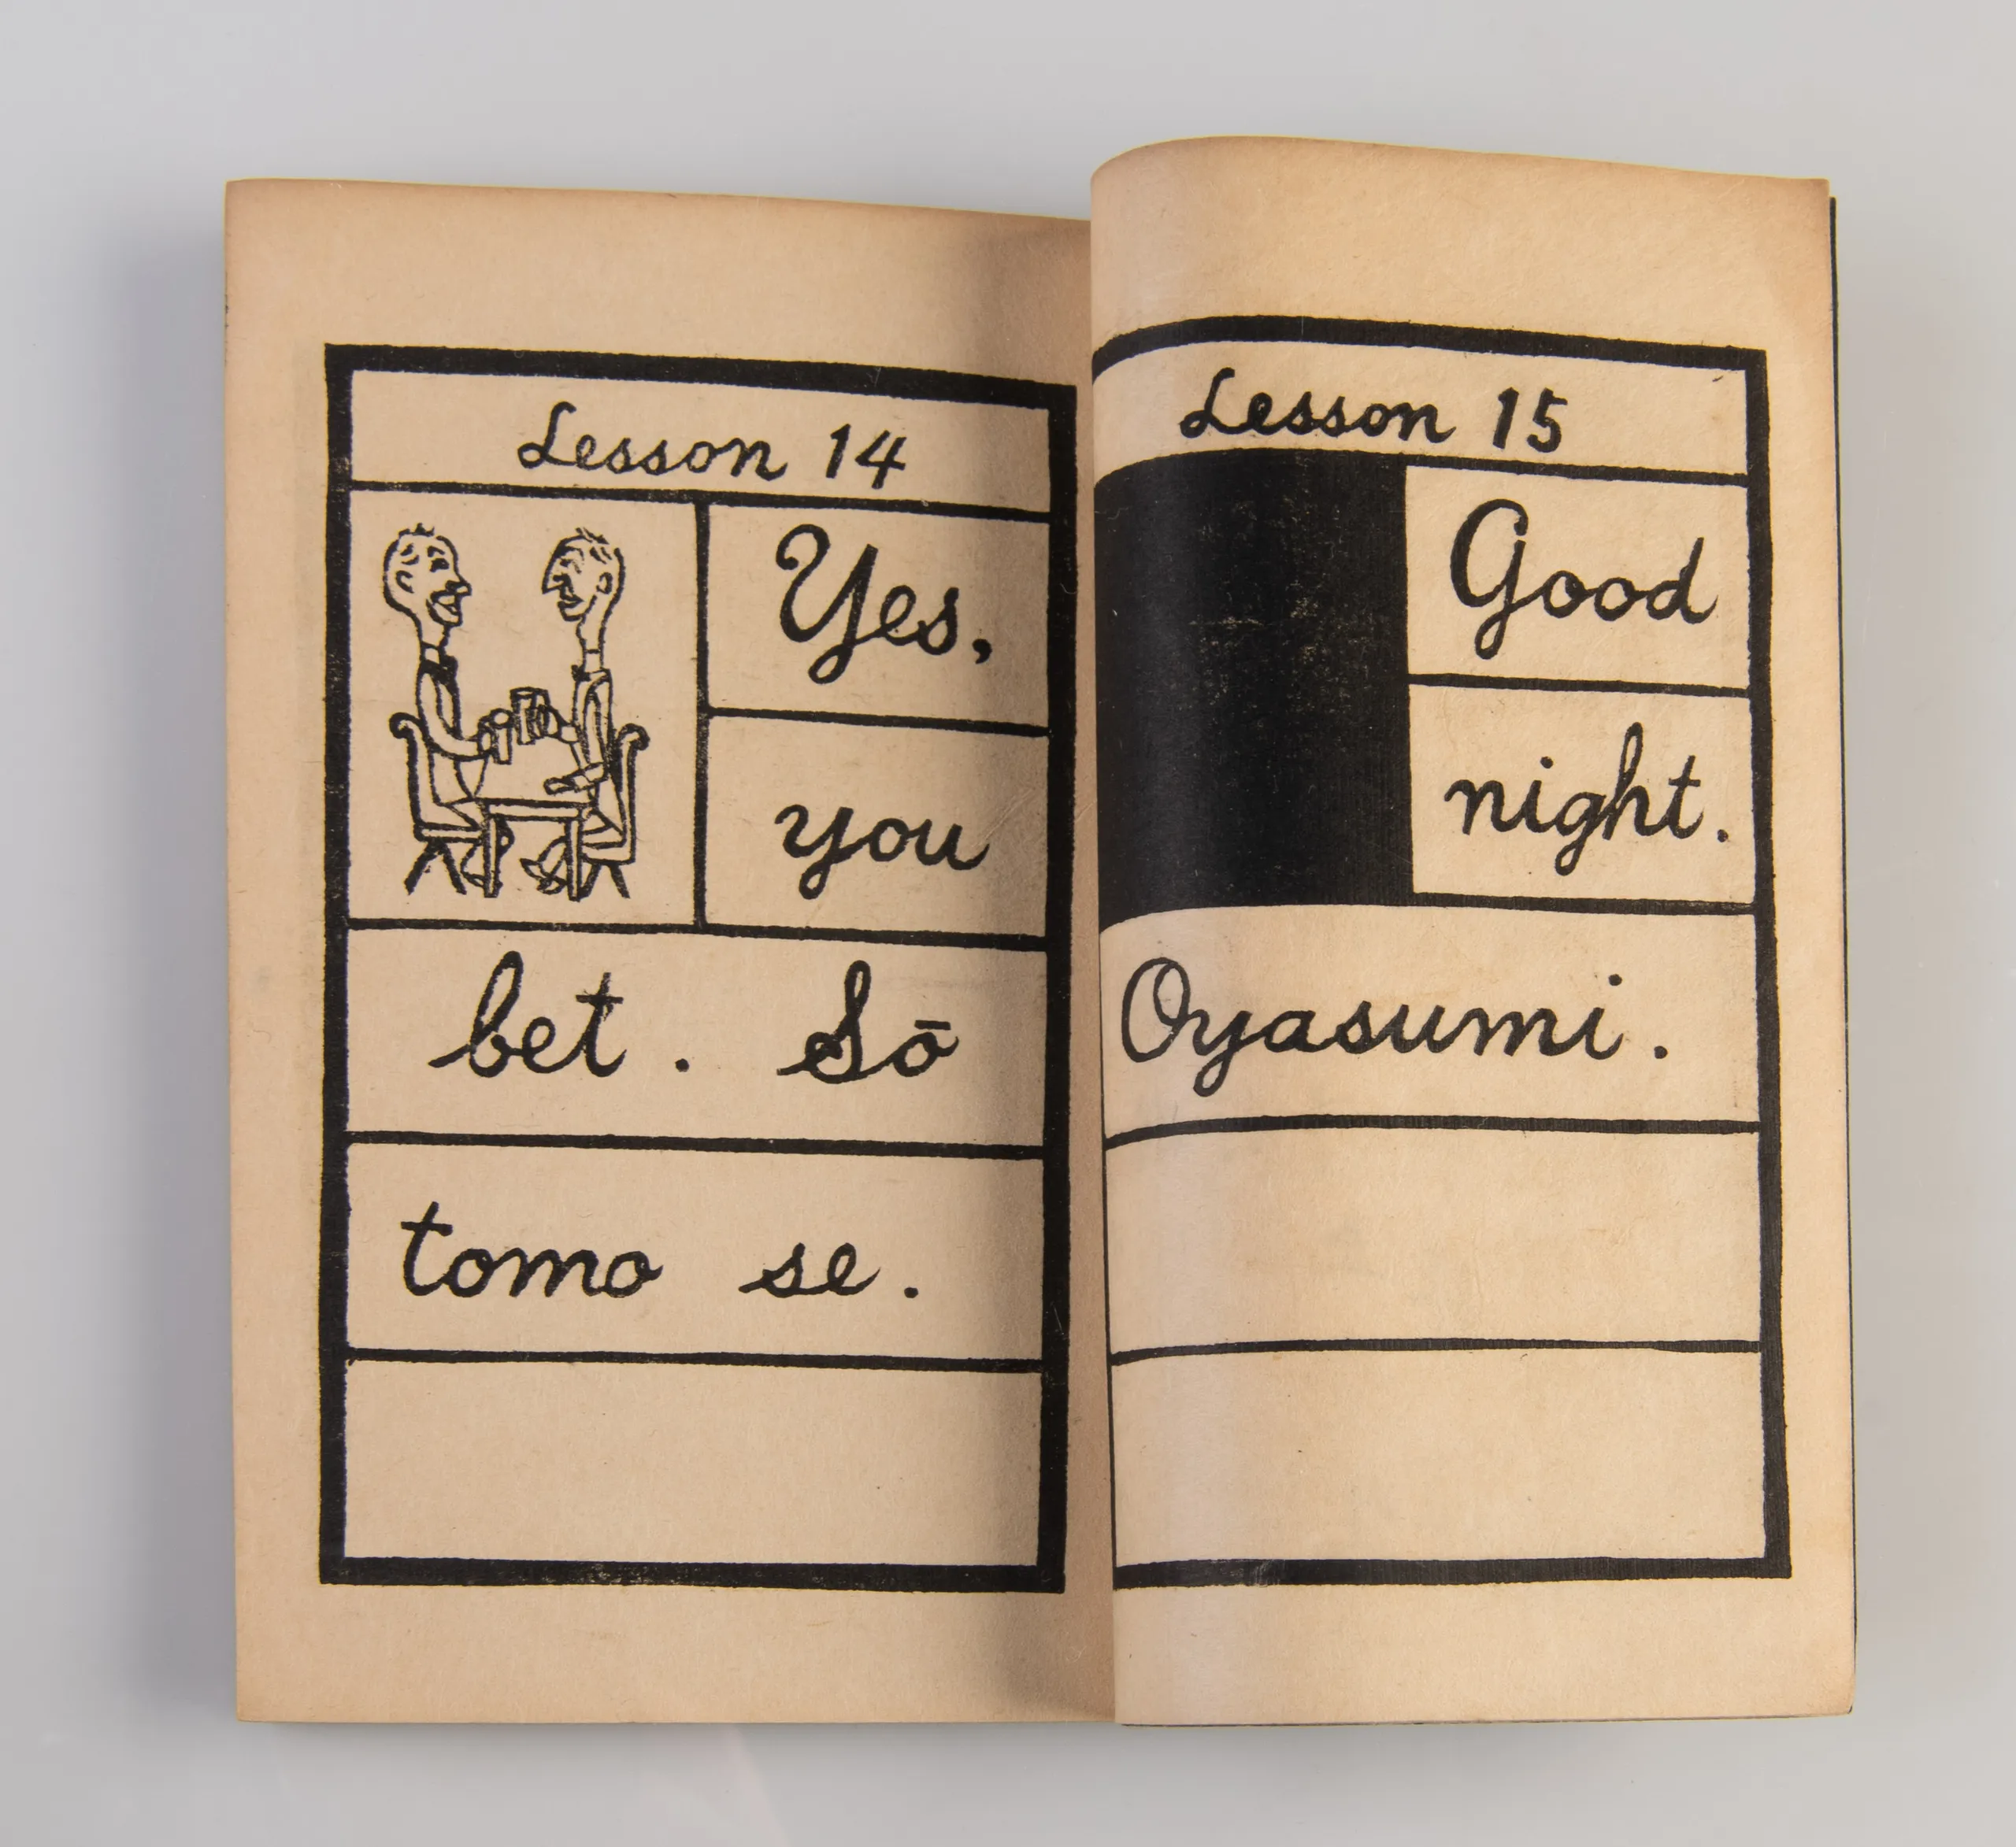 Lesson 14
Yes,
you
bet. Sō
tomo se.
Lesson 15
Good
night.
Oyasumi.